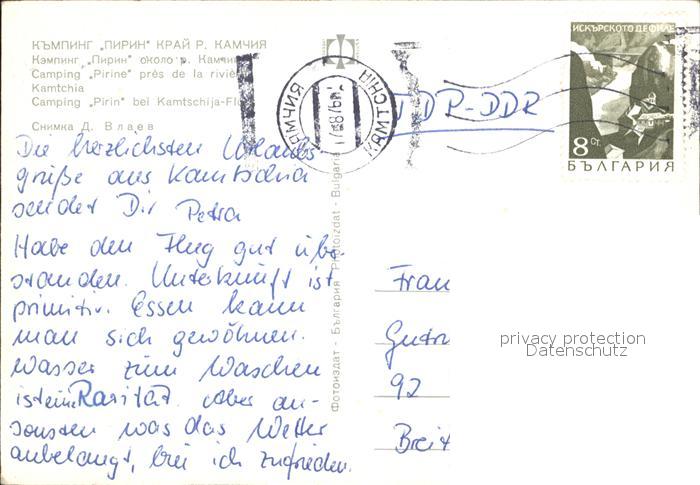 КЪМПИНГ „ПИРИН“ КРАЙ Р. КАМЧИЯ
Кэмпинг „Пирин“ около р. Камчи
Camping "Pirine" près de la riviè
Kamtchia
Camping „Pirin“ bei Kamtschija-Flu
Снимка Д. Влаев
Die herzlichsten Urlaubs-
grüße aus Kamtschia
sendet Dir Petra
Habe den Flug gut über-
standen. Unterkunft ist
primitiv. Essen kann
man sich gewöhnen.
Wasser zum Waschen
ist eine Rarität. Aber an-
sonsten was das Wetter
anbelangt, bin ich zufrieden.
Фотоиздат - България Photoizdat - Bulgaria
КАМЧИЯ
KAMTCHIH
DDR-DDR
ИСКЪРСКОТО ДЕФИЛЕ
8 СТ.
БЪЛГАРИЯ
Frau
Gutru
92
Breit
privacy protection
Datenschutz